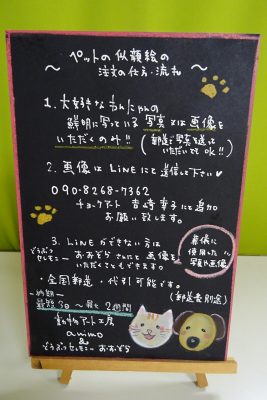 ～ペットの似顔絵の
注文の仕方・流れ～
1. 大好きなわんにゃんの
鮮明に写っている写真又は画像を
いただくのみ!!(郵送で写真を送って
いただいてもOK!!)
2. 画像はLINEにて送信して下さい♥
090-8268-7362
チョークアート 幸子に追加
お願い致します。
3. LINEができない方は
どうぶつセレモニー おおぞらさんにて画像を
いただくこともできます。
葬儀に
使用したい
写真や画像
・全国郵送・代引可能です。
(郵送費別途)
-納期-
最短3日～長くて2週間
動物アート工房
animo
&
どうぶつセレモニー おおぞら